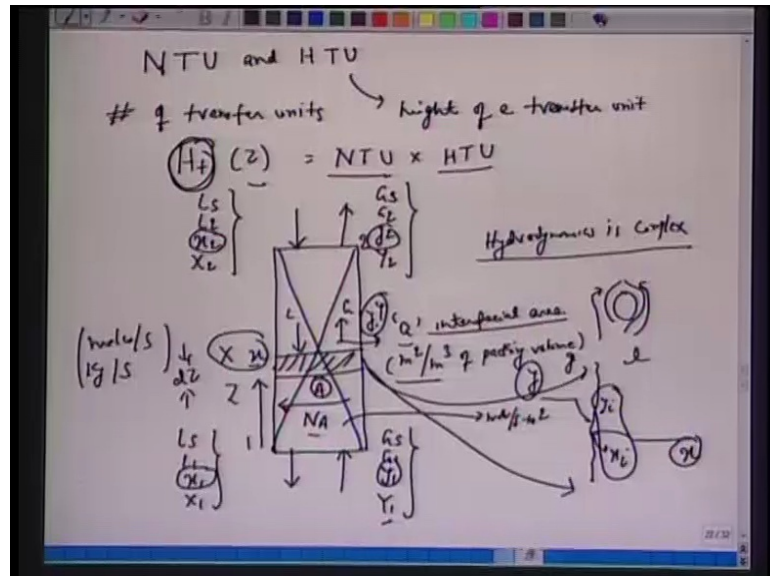 NTU and HTU
# of transfer units
height of a transfer unit
Ht (Z) = NTU x HTU
Ls
L2
x2
X2
Gs
G2
y2
Y2
Hydrodynamics is complex
L
G
y
'a' interfacial area
(m²/m³ of packing volume)
(mole/s
kg/s)
dZ
X x
Z
A
NA
mol/s-m²
g
l
y
yi
xi
x
1
Ls
L1
x1
X1
Gs
y1
Y1